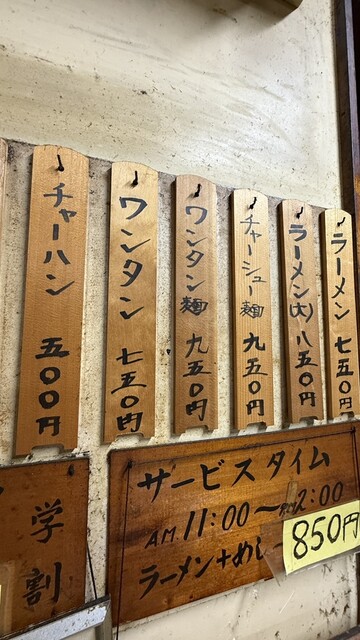 ラーメン 七五〇円
ラーメン(大) 八五〇円
チャーシュー麺 九五〇円
ワンタン麺 九五〇円
ワンタン 七五〇円
チャーハン 五〇〇円
サービスタイム
AM 11:00〜PM2:00
ラーメン+めし
850円
学割